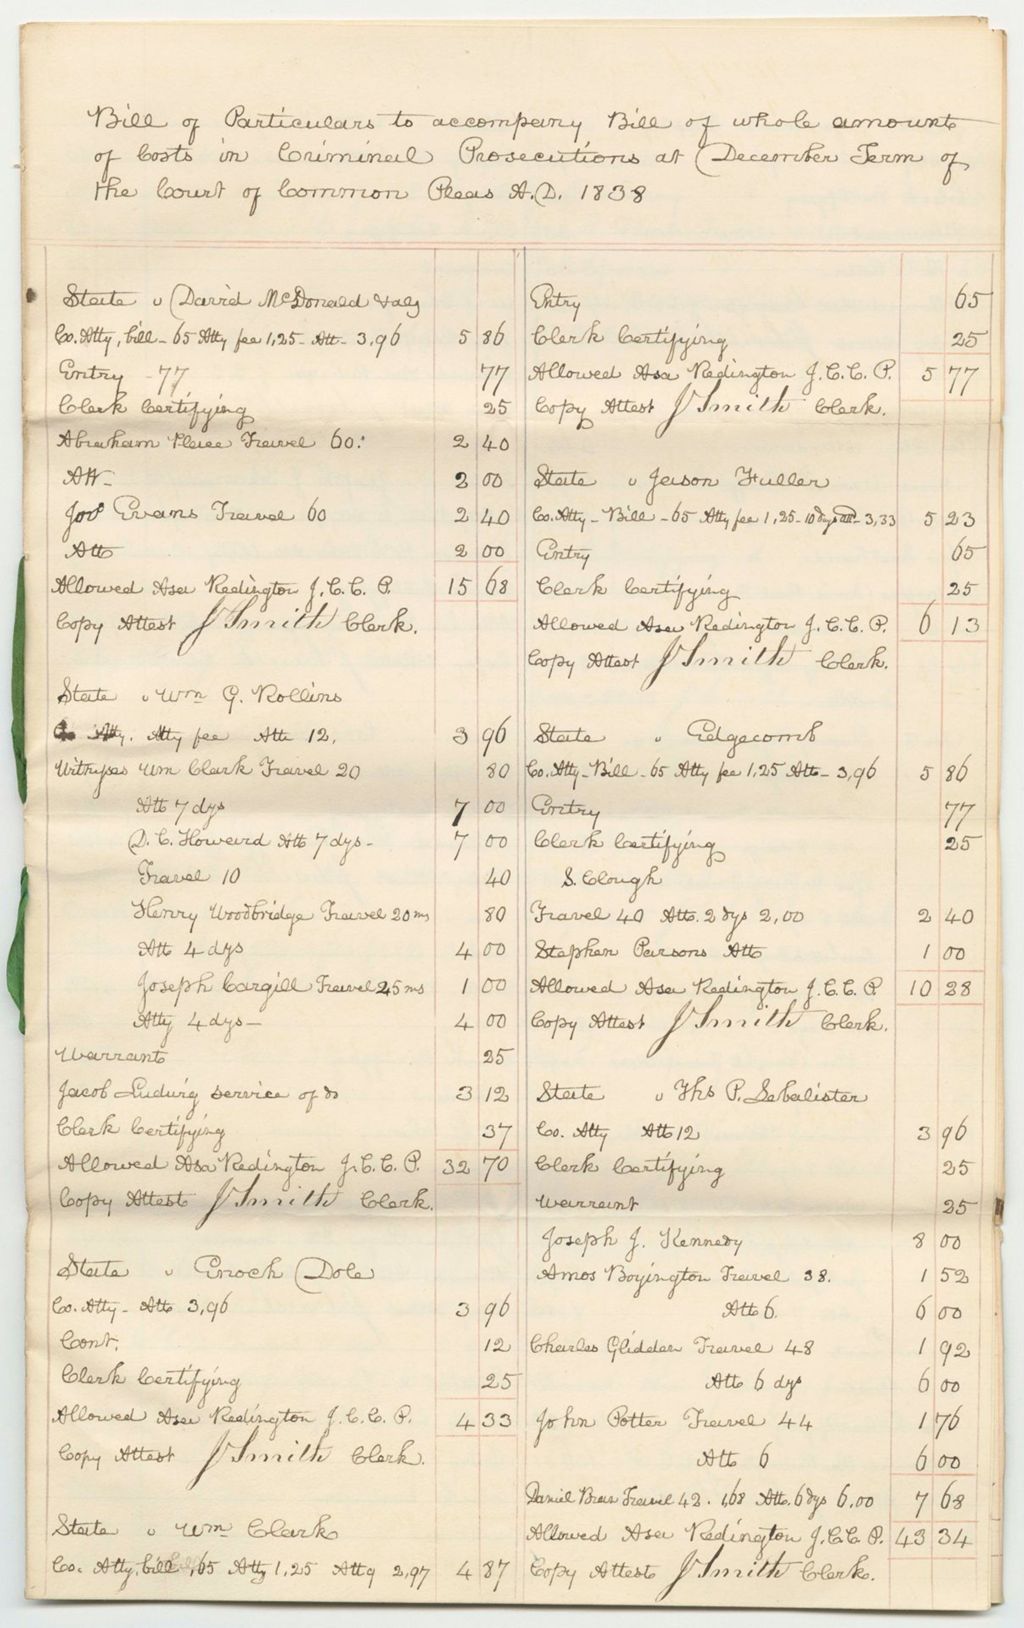 Bill of Particulars to accompany Bill of whole amount
of Costs in Criminal Prosecutions at December Term of
the Court of Common Pleas A.D. 1838
State v David McDonald & als
Co. Atty, bill - 65 Atty fee 1,25 - Att - 3,96 5 86
Entry - 77 77
Clerk Certifying 25
Abraham Travel 60: 2 40
Att- 2 00
Evans Travel 60 2 40
Att 2 00
Allowed Asa Redington J.C.C.P. 15 68
Copy Attest J Smith Clerk.
State v Wm G. Rollins
Co. Atty. Atty fee Att 12, 3 96
Witnesses Wm Clark Travel 20 80
Att 7 dys 7 00
D. C. Howard Att 7 dys - 7 00
Travel 10 40
Henry Woodbridge Travel 20 ms 80
Att 4 dys 4 00
Joseph Cargill Travel 25 ms 1 00
Atty 4 dys - 4 00
Warrant 25
Jacob Ludwig service of do 3 12
Clerk Certifying 37
Allowed Asa Redington J.C.C.P. 32 70
Copy Attest J Smith Clerk.
State v Enoch Dole
Co. Atty - Att 3,96 3 96
Cont. 12
Clerk Certifying 25
Allowed Asa Redington J.C.C.P. 4 33
Copy Attest J Smith Clerk.
State v Wm Clark
Co. Atty, bill ,65 Atty 1,25 Att 9 2,97 4 87
Entry 65
Clerk Certifying 25
Allowed Asa Redington J.C.C.P. 5 77
Copy Attest J Smith Clerk.
State v Jason Fuller
Co. Atty - Bill - 65 Atty fee 1,25 - 10 dys att - 3,33 5 23
Entry 65
Clerk Certifying 25
Allowed Asa Redington J.C.C.P. 6 13
Copy Attest J Smith Clerk.
State v Edgecomb
Co. Atty - Bill - 65 Atty fee 1,25 Att - 3,96 5 86
Entry 77
Clerk Certifying 25
S. Clough
Travel 40 Att. 2 dys 2,00 2 40
Stephen Parsons Att 1 00
Allowed Asa Redington J.C.C.P 10 28
Copy Attest J Smith Clerk.
State v Ths P. Sebalister
Co. Atty Att 12 3 96
Clerk Certifying 25
Warrant 25
Joseph J. Kennedy 8 00
Amos Boyington Travel 38. 1 52
Att 6. 6 00
Charles Glidden Travel 48 1 92
Att 6 dys 6 00
John Potter Travel 44 1 76
Att 6 6 00
Daniel Travel 42 . 1,68 Att. 6 dys 6,00 7 68
Allowed Asa Redington J.C.C.P. 43 34
Copy Attest J Smith Clerk.